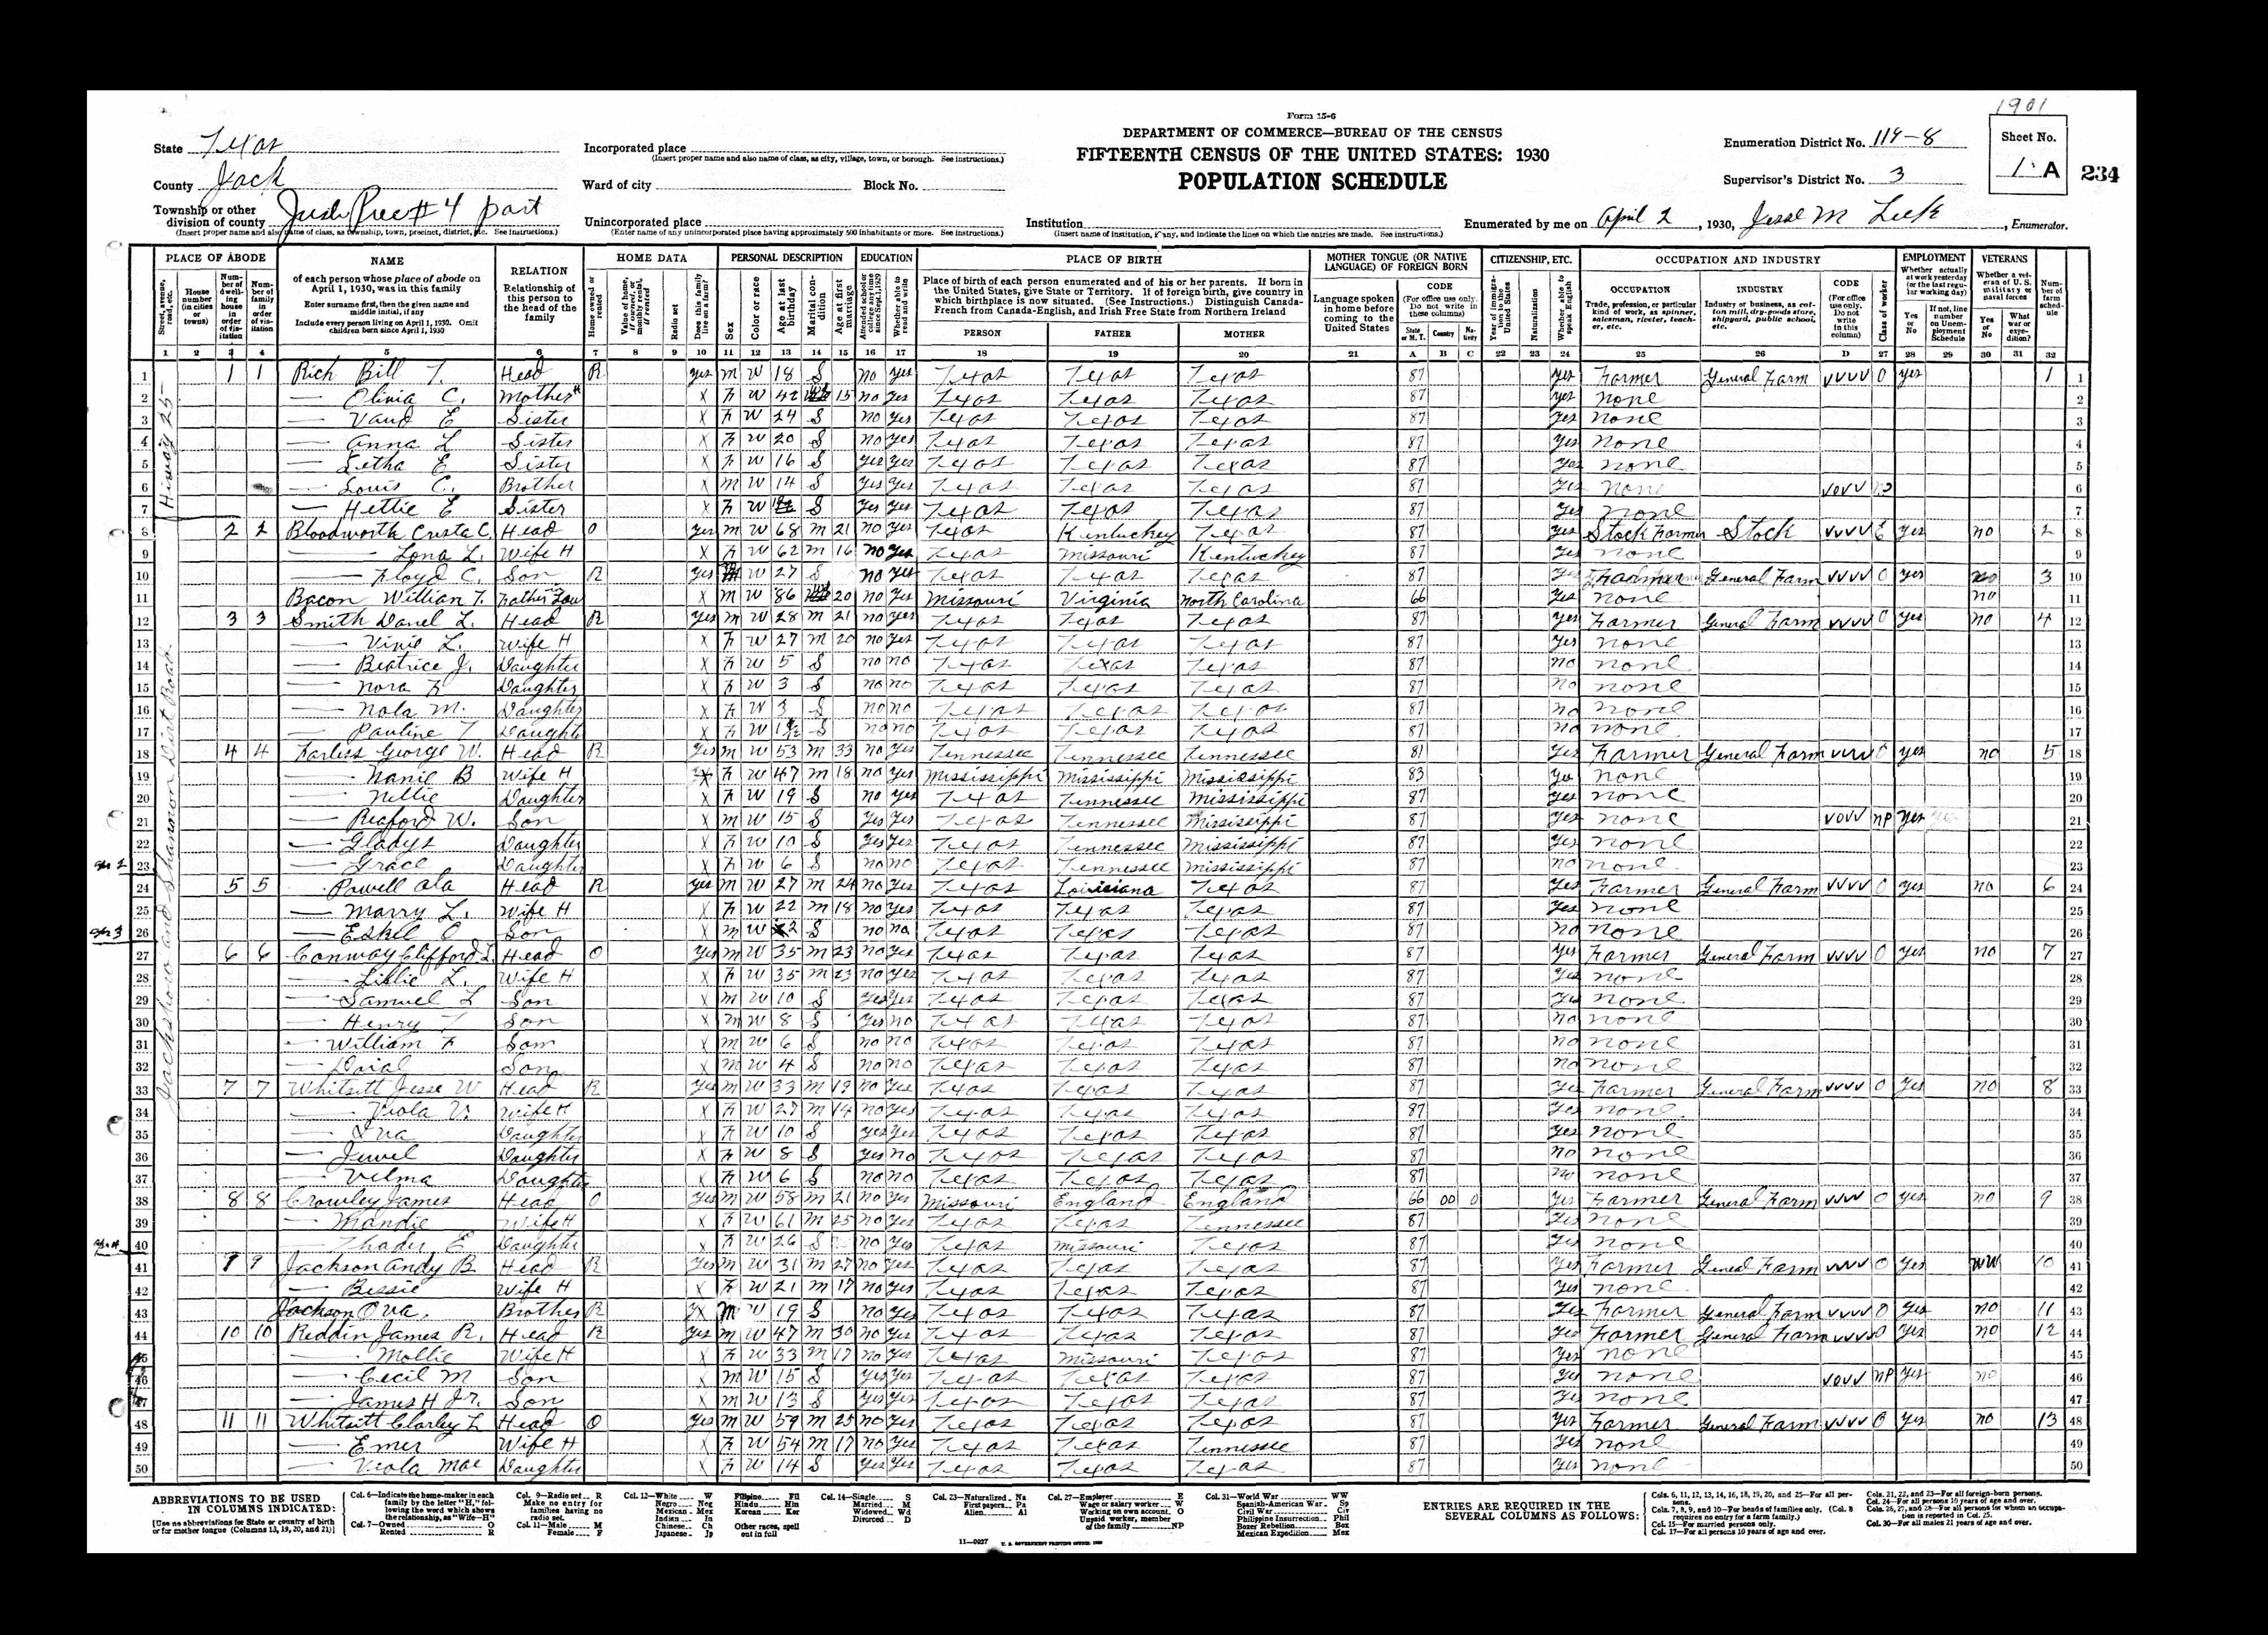 1901
Form 15-6
DEPARTMENT OF COMMERCE—BUREAU OF THE CENSUS
FIFTEENTH CENSUS OF THE UNITED STATES: 1930
POPULATION SCHEDULE
State Texas
County Jack
Township or other division of county Prec #4 part
(Insert proper name and also name of class, as township, town, precinct, district, etc. See instructions.)
Incorporated place
(Insert proper name and also name of class, as city, village, town, or borough. See instructions.)
Ward of city Block No.
Unincorporated place
(Enter name of any unincorporated place having approximately 500 inhabitants or more. See instructions.)
Institution
(Insert name of institution, if any, and indicate the lines on which the entries are made. See instructions.)
Enumeration District No. 119-8
Supervisor's District No. 3
Sheet No.
1 A
234
Enumerated by me on April 2, 1930, Jesse M Leek, Enumerator.
PLACE OF ABODE NAME RELATION HOME DATA PERSONAL DESCRIPTION EDUCATION PLACE OF BIRTH MOTHER TONGUE (OR NATIVE LANGUAGE) OF FOREIGN BORN CITIZENSHIP, ETC. OCCUPATION AND INDUSTRY EMPLOYMENT VETERANS
of each person whose place of abode on April 1, 1930, was in this family
Enter surname first, then the given name and middle initial, if any
Include every person living on April 1, 1930. Omit children born since April 1, 1930
Relationship of this person to the head of the family
Place of birth of each person enumerated and of his or her parents. If born in the United States, give State or Territory. If of foreign birth, give country in which birthplace is now situated. (See Instructions.) Distinguish Canada-French from Canada-English, and Irish Free State from Northern Ireland
PERSON FATHER MOTHER
Language spoken in home before coming to the United States
CODE (For office use only. Do not write in these columns)
OCCUPATION Trade, profession, or particular kind of work, as spinner, salesman, riveter, teacher, etc.
INDUSTRY Industry or business, as cotton mill, dry-goods store, shipyard, public school, etc.
1 2 3 4 5 6 7 8 9 10 11 12 13 14 15 16 17 18 19 20 21 A B C 22 23 24 25 26 D 27 28 29 30 31 32
Hiway 25
1 1 1 Rich Bill T. Head R yes M W 18 S no yes Texas Texas Texas 87 yes Farmer General Farm VVVV O yes 1
2 — Olivia C. Mother H X F W 42 15 no yes Texas Texas Texas 87 yes none
3 — Vaud E Sister X F W 24 S no yes Texas Texas Texas 87 yes none
4 — Anna L Sister X F W 20 S no yes Texas Texas Texas 87 yes none
5 — Letha E Sister X F W 16 S yes yes Texas Texas Texas 87 yes none
6 — Louis C. Brother X M W 14 S yes yes Texas Texas Texas 87 yes none VOVV
7 — Hettie E Sister X F W S yes yes Texas Texas Texas 87 yes none
8 2 2 Bloodworth Crista C. Head O yes M W 68 M 21 no yes Texas Kentuckey Texas 87 yes Stock Farmer Stock VVVV E yes no 2
9 — Lona L. Wife H X F W 62 M 16 no yes Texas Missouri Kentuckey 87 yes none
10 — Floyd C. Son R yes M W 27 S no yes Texas Texas Texas 87 yes Farmer General Farm VVVV O yes no 3
11 Bacon William T. Father Law X M W 86 20 no yes Missouri Virginia North Carolina 66 yes none no
12 3 3 Smith Danel L. Head R yes M W 28 M 21 no yes Texas Texas Texas 87 yes Farmer General Farm VVVV O yes no 4
13 — Vinie L. Wife H X F W 27 M 20 no yes Texas Texas Texas 87 yes none
14 — Beatrice J. Daughter X F W 5 S no no Texas Texas Texas 87 no none
15 — Nora F Daughter X F W 3 S no no Texas Texas Texas 87 no none
16 — Nola M. Daughter X F W 3 S no no Texas Texas Texas 87 no none
17 — Pauline T Daughter X F W S no no Texas Texas Texas 87 no none
Jacksboro and Shannon Dirt Road
18 4 4 Farless George W. Head R yes M W 53 M 33 no yes Tennessee Tennessee Tennessee 81 yes Farmer General Farm VVVV O yes no 5
19 — Nanie B Wife H X F W 47 M 18 no yes Mississippi Mississippi Mississippi 83 yes none
20 — Nellie Daughter X F W 19 S no yes Texas Tennessee Mississippi 87 yes none
21 — Reaford W. Son X M W 15 S yes yes Texas Tennessee Mississippi 87 yes none VOVV NP yes
22 — Gladys Daughter X F W 10 S yes yes Texas Tennessee Mississippi 87 yes none
23 — Grace Daughter X F W 6 S no no Texas Tennessee Mississippi 87 no none
24 5 5 Powell Ola Head R yes M W 27 M 24 no yes Texas Louisiana Texas 87 yes Farmer General Farm VVVV O yes no 6
25 — Marry L. Wife H X F W 22 M 18 no yes Texas Texas Texas 87 yes none
26 — Eskel O Son X M W 2 S no no Texas Texas Texas 87 no none
27 6 6 Conway Clifford L. Head O yes M W 35 M 23 no yes Texas Texas Texas 87 yes Farmer General Farm VVVV O yes no 7
28 — Lillie L. Wife H X F W 35 M 23 no yes Texas Texas Texas 87 yes none
29 — Samuel L Son X M W 10 S yes yes Texas Texas Texas 87 yes none
30 — Henry T Son X M W 8 S yes no Texas Texas Texas 87 no none
31 — William F Son X M W 6 S no no Texas Texas Texas 87 no none
32 — Doial Son X M W 4 S no no Texas Texas Texas 87 no none
33 7 7 Whitsitt Jesse W Head R yes M W 33 M 19 no yes Texas Texas Texas 87 yes Farmer General Farm VVVV O yes no 8
34 — Viola V. Wife H X F W 27 M 14 no yes Texas Texas Texas 87 yes none
35 — Iva Daughter X F W 10 S yes yes Texas Texas Texas 87 yes none
36 — Jewel Daughter X F W 8 S yes no Texas Texas Texas 87 no none
37 — Velma Daughter X F W 6 S no no Texas Texas Texas 87 no none
38 8 8 Crowley James Head O yes M W 58 M 21 no yes Missouri England England 66 00 0 yes Farmer General Farm VVVV O yes no 9
39 — Mandie Wife H X F W 61 M 25 no yes Texas Texas Tennessee 87 yes none
40 — Thader E Daughter X F W 26 S no yes Texas Missouri Texas 87 yes none
41 9 9 Jackson Andy B Head R yes M W 31 M 27 no yes Texas Texas Texas 87 yes Farmer General Farm VVVV O yes WW 10
42 — Bessie Wife H X F W 21 M 17 no yes Texas Texas Texas 87 yes none
43 Jackson Ova. Brother R X M W 19 S no yes Texas Texas Texas 87 yes Farmer General Farm VVVV O yes no 11
44 10 10 Reddin James R. Head R yes M W 47 M 30 no yes Texas Texas Texas 87 yes Farmer General Farm VVVV O yes no 12
45 — Mollie Wife H X F W 33 M 17 no yes Texas Missouri Texas 87 yes none
46 — Cecil M Son X M W 15 S yes yes Texas Texas Texas 87 yes none VOVV NP yes no
47 — James H Jr. Son X M W 13 S yes yes Texas Texas Texas 87 yes none
48 11 11 Whitsitt Clarley L Head O yes M W 59 M 25 no yes Texas Texas Texas 87 yes Farmer General Farm VVVV O yes no 13
49 — Emer Wife H X F W 54 M 17 no yes Texas Texas Tennessee 87 yes none
50 — Viola Mae Daughter X F W 14 S yes yes Texas Texas Texas 87 yes none
ABBREVIATIONS TO BE USED IN COLUMNS INDICATED:
[Use no abbreviations for State or country of birth or for mother tongue (Columns 18, 19, 20, and 21)]
Col. 6—Indicate the home-maker in each family by the letter "H," following the word which shows the relationship, as "Wife—H"
Col. 7—Owned O Rented R
Col. 9—Radio set R Make no entry for families having no radio set.
Col. 11—Male M Female F
Col. 12—White W Negro Neg Mexican Mex Indian In Chinese Ch Japanese Jp
Filipino Fil Hindu Hin Korean Kor Other races, spell out in full
Col. 14—Single S Married M Widowed Wd Divorced D
Col. 23—Naturalized Na First papers Pa Alien Al
Col. 27—Employer E Wage or salary worker W Working on own account O Unpaid worker, member of the family NP
Col. 31—World War WW Spanish-American War Sp Civil War Civ Philippine Insurrection Phil Boxer Rebellion Box Mexican Expedition Mex
ENTRIES ARE REQUIRED IN THE SEVERAL COLUMNS AS FOLLOWS:
Cols. 6, 11, 12, 13, 14, 16, 18, 19, 20, and 25—For all persons.
Cols. 7, 8, 9, and 10—For heads of families only. (Col. 8 requires no entry for a farm family.)
Col. 15—For married persons only.
Col. 17—For all persons 10 years of age and over.
Cols. 21, 22, and 23—For all foreign-born persons.
Col. 24—For all persons 10 years of age and over.
Cols. 26, 27, and 28—For all persons for whom an occupation is reported in Col. 25.
Col. 30—For all males 21 years of age and over.
11—9927 U. S. GOVERNMENT PRINTING OFFICE: 1930